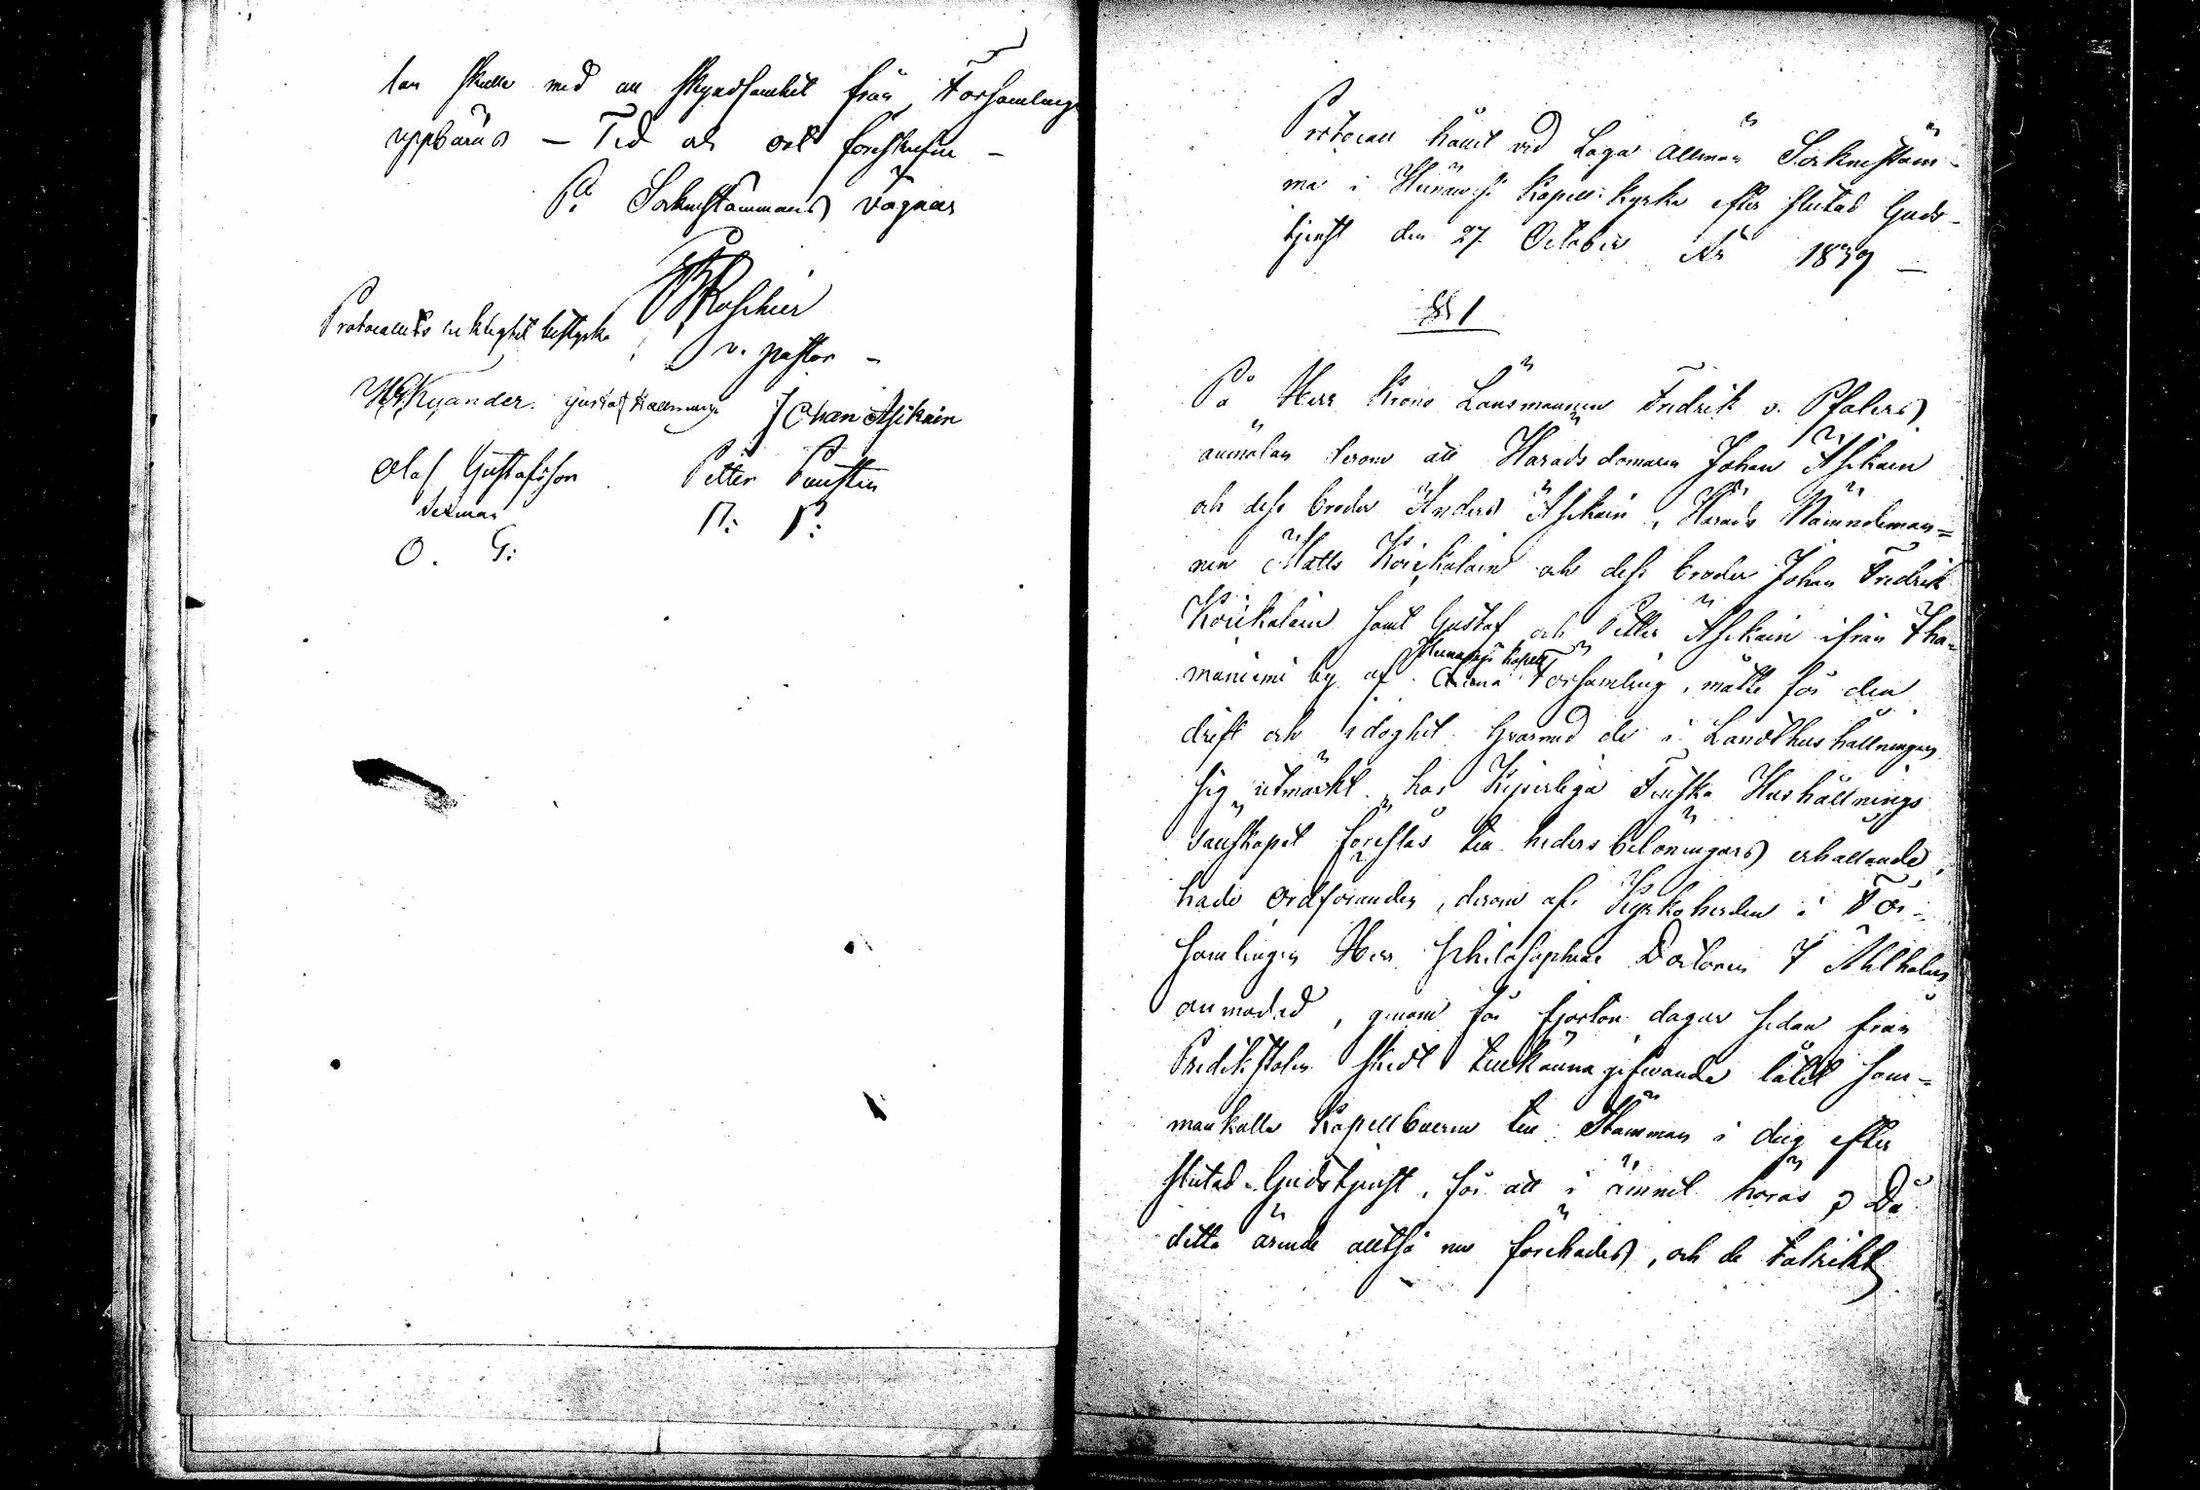 lan skulle med all skyndsamhet från Församlingen
uppbäras — Tid och ort förskrifne —
På Sockenstämmans vägnar
Roschier
v. pastor —
Protocollets riktighet bestyrka
Kyander. Gustaf Johan Asikain
Olof Gustafsson Petter Puustin
sexman
O. G: P: P:
Protocoll hållit vid Laga Allmän Sockenstäm-
ma i Kapell kyrka efter slutad Guds-
tjenst den 27 October År 1839 —
§ 1
På Herr Krono Länsmannen Fredrik v. Pfalers
anmälan derom att Härads domaren Johan Asikain
och dess broder Anders Asikain, Härads Nämndeman-
nen Matts Köickälain och dess broder Johan Fredrik
Köickälain samt Gustaf och Petter Asikain ifrån Iha-
maniemi by af Kapell Församling, måtte för den
drift och idoghet hvarmed de i Landthushållningen
sig utmärkt, hos Kejserliga Finska Hushållnings
Sällskapet föreslås till hedersbelöningars erhållande,
hade Ordföranden, derom af Kyrkoherden i För-
samlingen Herr Philosophiae Doctoren J Ahlholm
anmodad, genom för fjorton dagar sedan från
Predikstolen skedt tillkännagifvande låtit sam-
mankalla Kapellboerne till Stämman i dag efter
slutad Gudstjenst, för att i ämnet höras; Då
detta ärende alltså nu förehades, och de talrikt